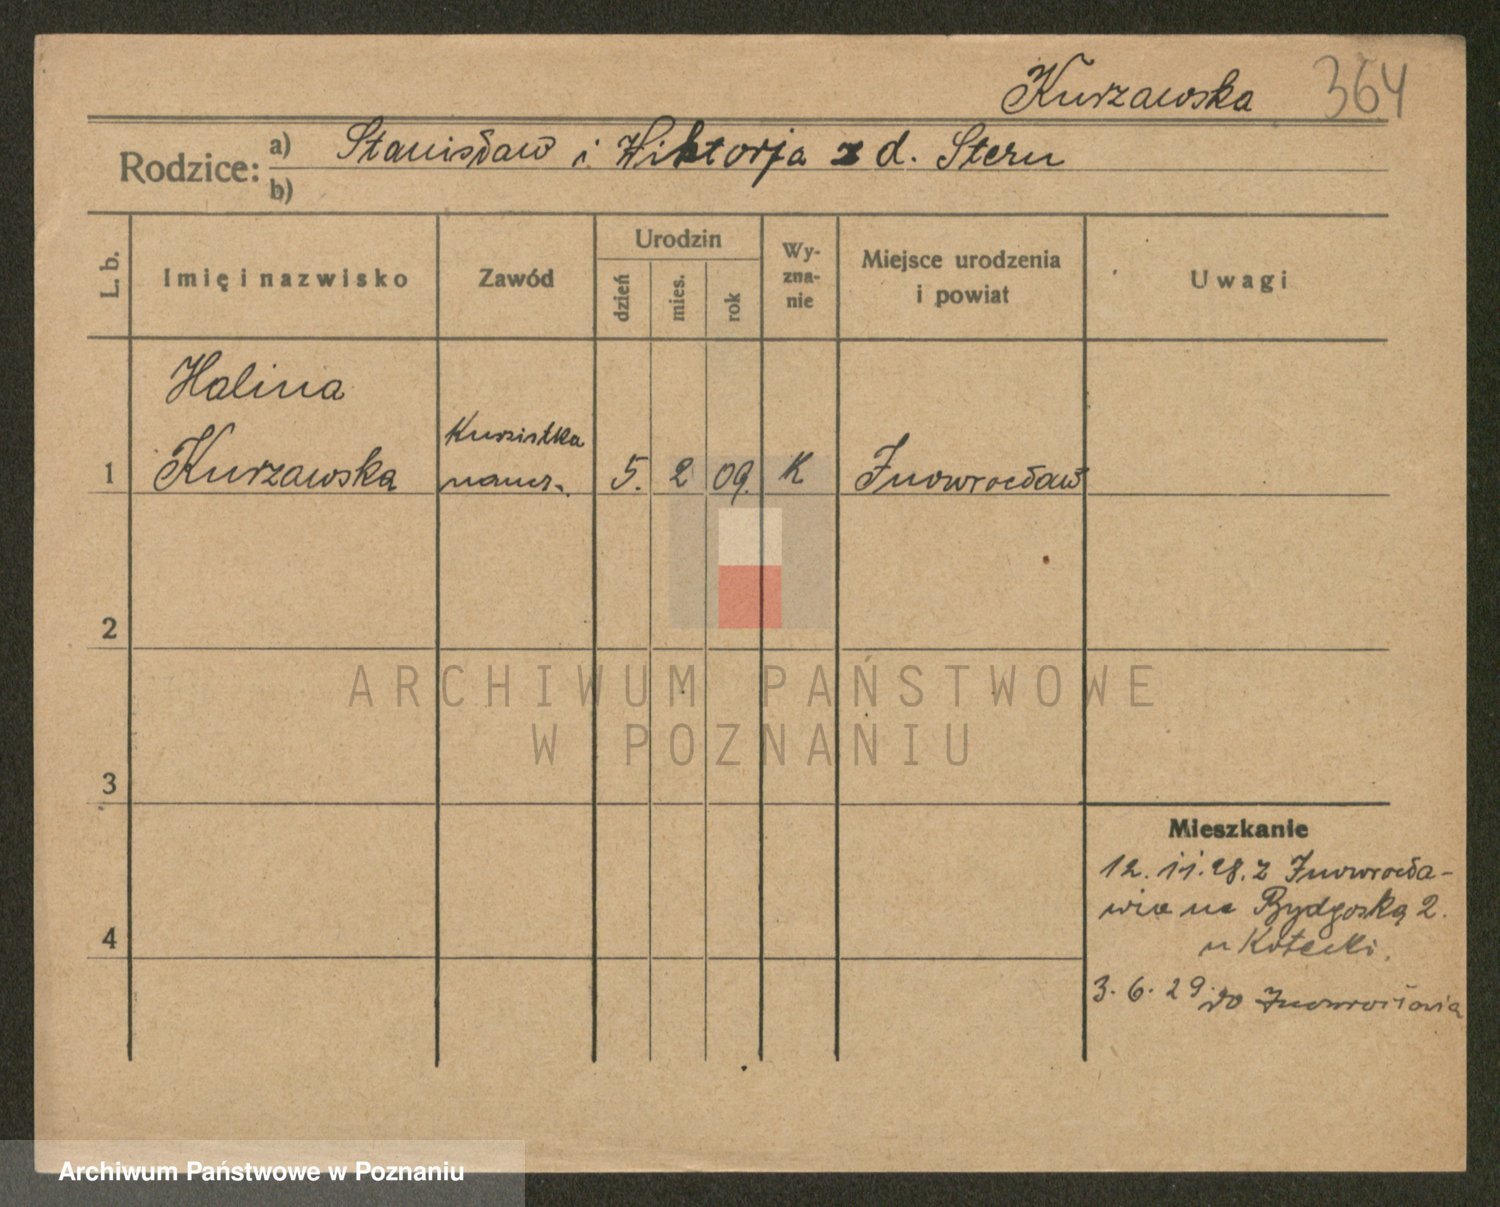 Kurzawska 364
Rodzice: a) Stanisław i Wiktorja z d. Stern
b)
L. b. Imię i nazwisko Zawód Urodzin dzień mies. rok Wy-zna-nie Miejsce urodzenia i powiat Uwagi
Halina
Kursistka
1 Kurzawska naucz. 5. 2 09. K Inowrocław
2
ARCHIWUM PAŃSTWOWE
W POZNANIU
3
Mieszkanie
12. 11. 28. z Inowrocła-
wia na Bydgoską 2.
4
u Kotecki.
3. 6. 29. do Inowrocławia
Archiwum Państwowe w Poznaniu